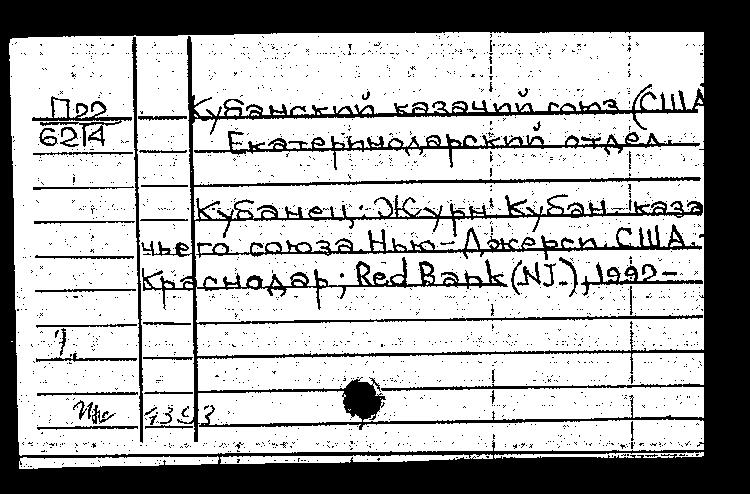 П00
6214
Кубанский казачий союз (США
Екатеринодарский отдел.
Кубанец: Журн Кубан. каза
чьего союза Нью-Джерси. США.-
Краснодар; Red Bank (NJ.), 1992-